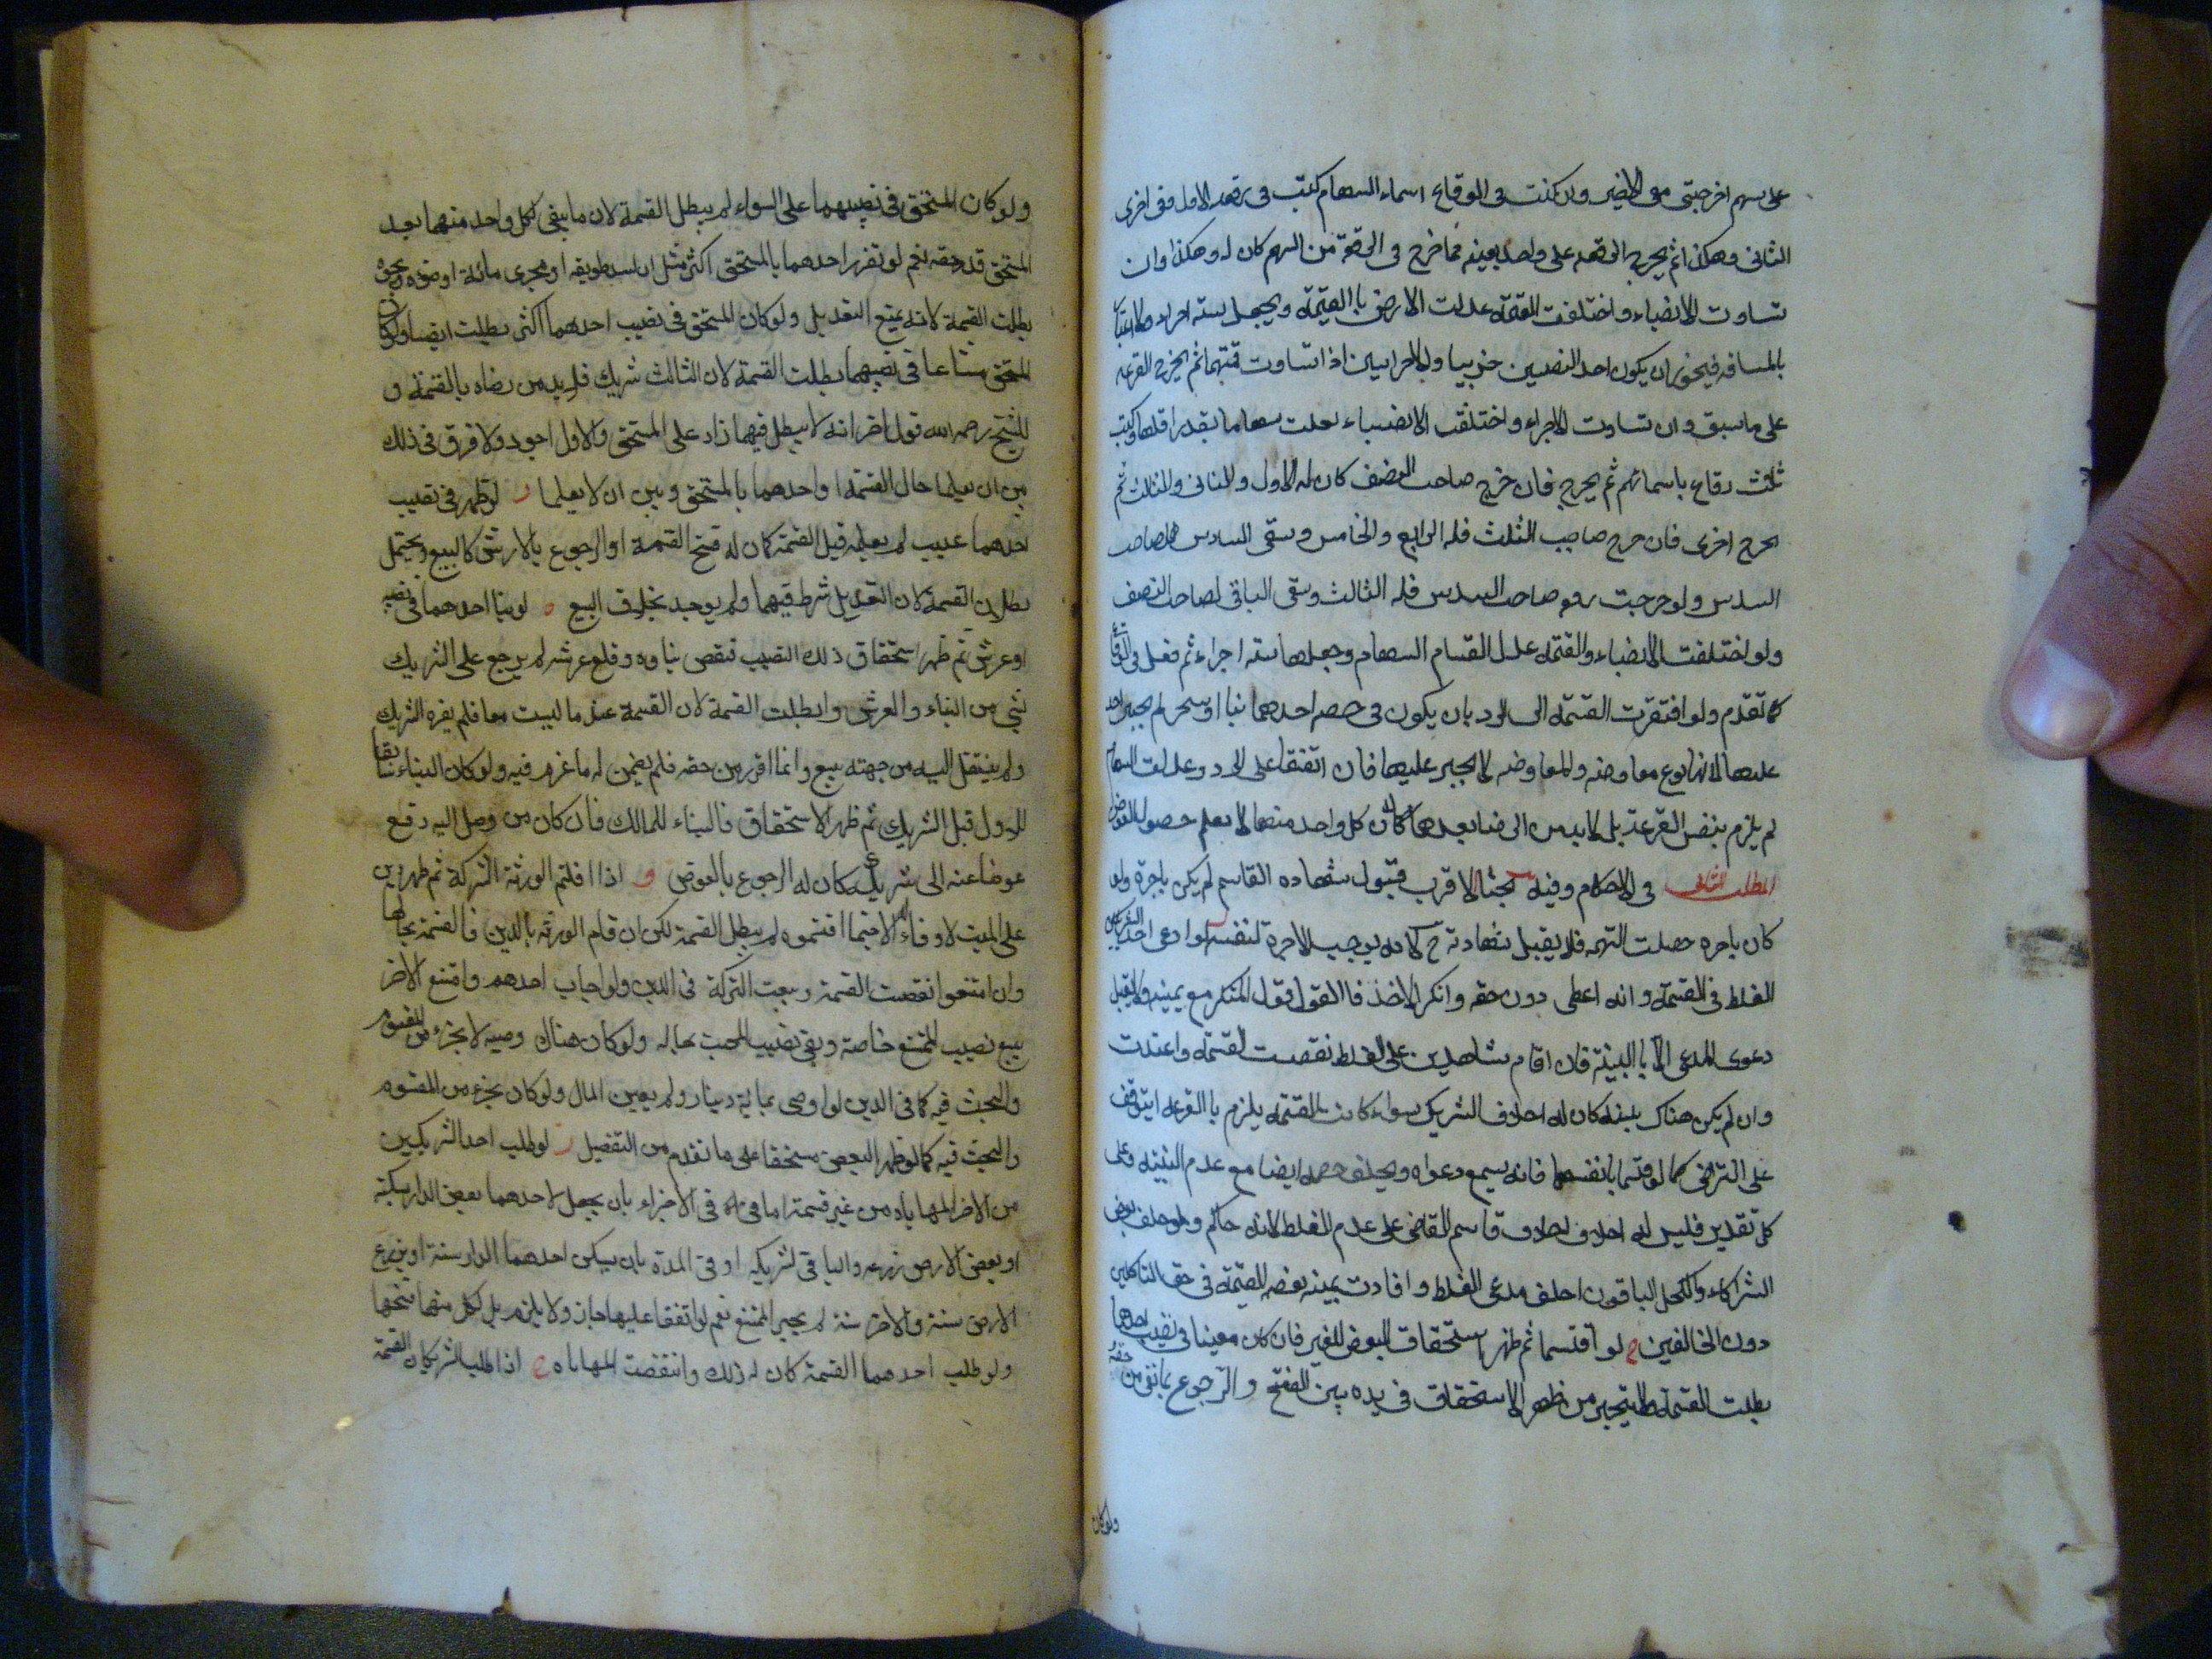 على سهم اخر حتى مع الاخير وان كتبت فى الرقاع اسماء السهام كتب فى رقعة الاول وفى اخرى
الثانى وهكذا ثم يخرج الرقعه على واحد بعينه فما خرج فى الرقعة من السهم كان له وهكذا وان
تساوت الانصباء واختلفت القيمة عدلت الارض باالقيمة ويجعل سته اجزاء ولا اعتبار
بالمسافه فيجوز ان يكون احد النصيبين جزءا اذا تساوت قيمتهما ثم يخرج القرعه
على ما سبق وان تساوت الاجزاء واختلفت الانصباء جعلت سهاما بقدر اقلها وكتب
ثلث رقاع باسمائهم ثم يخرج فان خرج صاحب النصف كان له الاول والثانى والثالث ثم
يخرج اخرى فان خرج صاحب الثلث فله الرابع والخامس وبقى السادس لصاحب
السدس ولو خرجت رقعه صاحب السدس فله الثالث وبقى الباقى لصاحب النصف
ولو اختلفت الانصباء والقيمه عدل القسام السهام وجعلها سته اجزاء ثم فعل فى الرقاع
كما تقدم ولو افتقرت القسمه الى الرد بان يكون فى حصه احدهما بناء او شجر لم يجبر احد
عليها لانها نوع معاوضه والمعاوضه لا يجبر عليها فان اتفقا على الرد وعدلت السهام
لم يلزم بنفس القرعة بل لابد من الرضا بعدها لان كل واحد منهما لا يعلم حصول العوض
المطلب الثانى فى الاحكام وفيه بحثا الاقرب قبول شهاده القاسم لم يكن باجرة ولو
كان باجره حصلت التهمه فلا يقبل شهادته ح لانه يوجب الاجرة لنفسه لو ادعى احد الشركاء
الغلط فى القسمة وانه اعطى دون حقه وانكر الاخذ فاالقول قول المنكر مع يمينه ولا يقبل
دعوى المدعى الا باالبينة فان اقام شاهدين على الغلط نقضت القسمة واعيدت
وان لم يكن هناك بينة كان له احلاف الشريك سواء كانت القسمة يلزم باالقرعه او يتوقف
على التراضى كما لو قسما بانفسهما فانه يسمع دعواه ويحلف خصمه ايضا مع عدم البينه وعلى
كل تقدير فليس له احلاف قاسم القاضى على عدم الغلط لانه حاكم ولو حلف بعض
الشركاء ونكل الباقون احلف مدعى الغلط وافادت يمينه نقص القسمة فى حق الناكلين
دون الحالفين ح لو اقتسما ثم ظهر استحقاق البعض للغير فان كان معينا فى نصيب احدهما
بطلت القسمة ولا يتخير من ظهر الاستحقاق فى يده بين الفسخ والرجوع بما بقى من حقه
ولو كان
ولو كان المستحق فى نصيبهما على السواء لم يبطل القسمة لان ما يبقى لكل واحد منهما بعد
المستحق قدر حقه نعم لو تضرر احدهما بالمستحق اكثر مثل ان يسد طريقه او مجرى مائه او ضوءه ونحوه
بطلت القسمة لانه يمنع التعديل ولو كان المستحق فى نصيب احدهما اكثر بطلت ايضا ولو كان
المستحق مشاعا فى نصيبهما بطلت القسمة لان الثالث شريك فلابد من رضاه بالقسمة و
للشيخ رحمه الله قول اخر انه لا يبطل فيما زاد على المستحق والاول اجود ولا فرق فى ذلك
بين ان يعلما حال القسمة او احدهما بالمستحق وبين ان لا يعلما لو ظهر فى نصيب
احدهما عيب لم يعلمه قبل القسمة كان له فسخ القسمة او الرجوع بالارش كالبيع ويحتمل
بطلان القسمة لان التعديل شرط فيهما ولم يوجد بخلاف البيع ه لو بنا احدهما فى نصيبه
او غرس ثم ظهر استحقاق ذلك النصيب فنقض بناوه وقلع غرسه لم يرجع على الشريك
بشى من البناء والغرس وان بطلت القسمة لان القسمة عندما ليست بيعا فلم يغره الشريك
ولم ينتقل اليه من جهته ببيع وانما افرز من حقه فلم يضمن له ما غرم فيه ولو كان البناء سابقا
للاول قبل الشريك ثم ظهر الاستحقاق فالبناء للمالك فان كان من وصل اليه دفع
عوضا عنه الى شريكه كان له الرجوع بالعوض و اذا اقتسم الورثة التركة ثم ظهر دين
على الميت لا وفاء له الا فيما اقتسموه لم يبطل القسمة لكن ان قام الورثه بالدين فالقسمة بحالها
وان امتنعوا نقضت القسمة وبيعت التركة فى الدين ولو اجاب احدهم وامتنع الاخر
بيع نصيب الممتنع خاصة وبقى نصيب المجيب بحاله ولو كان هناك وصيه لا بجزء من المقسوم
والبحث فيه كما فى الدين لو اوصى بماية دينار ولم يعين المال ولو كان بجزء من المقسوم
والبحث فيه كما لو ظهر البعض مستحقا على ما تقدم من التفصيل ز لو طلب احد الشريكين
من الاخر المهاياه من غير قسمة اما فى الاجزاء بان يجعل لاحدهما بعض الدار يسكنه
او بعض الارض يزرعه والباقى لشريكه او فى المدة بان يسكن احدهما الدار سنة او يزرع
الارض سنة والاخر سنة لم يجبر الممتنع نعم لو اتفقا عليها جاز ولا يلزم بل لكل منهما فسخها
ولو طلب احدهما القسمة كان له ذلك وانتقضت المهاياه ح اذا طلب الشريكان القسمة